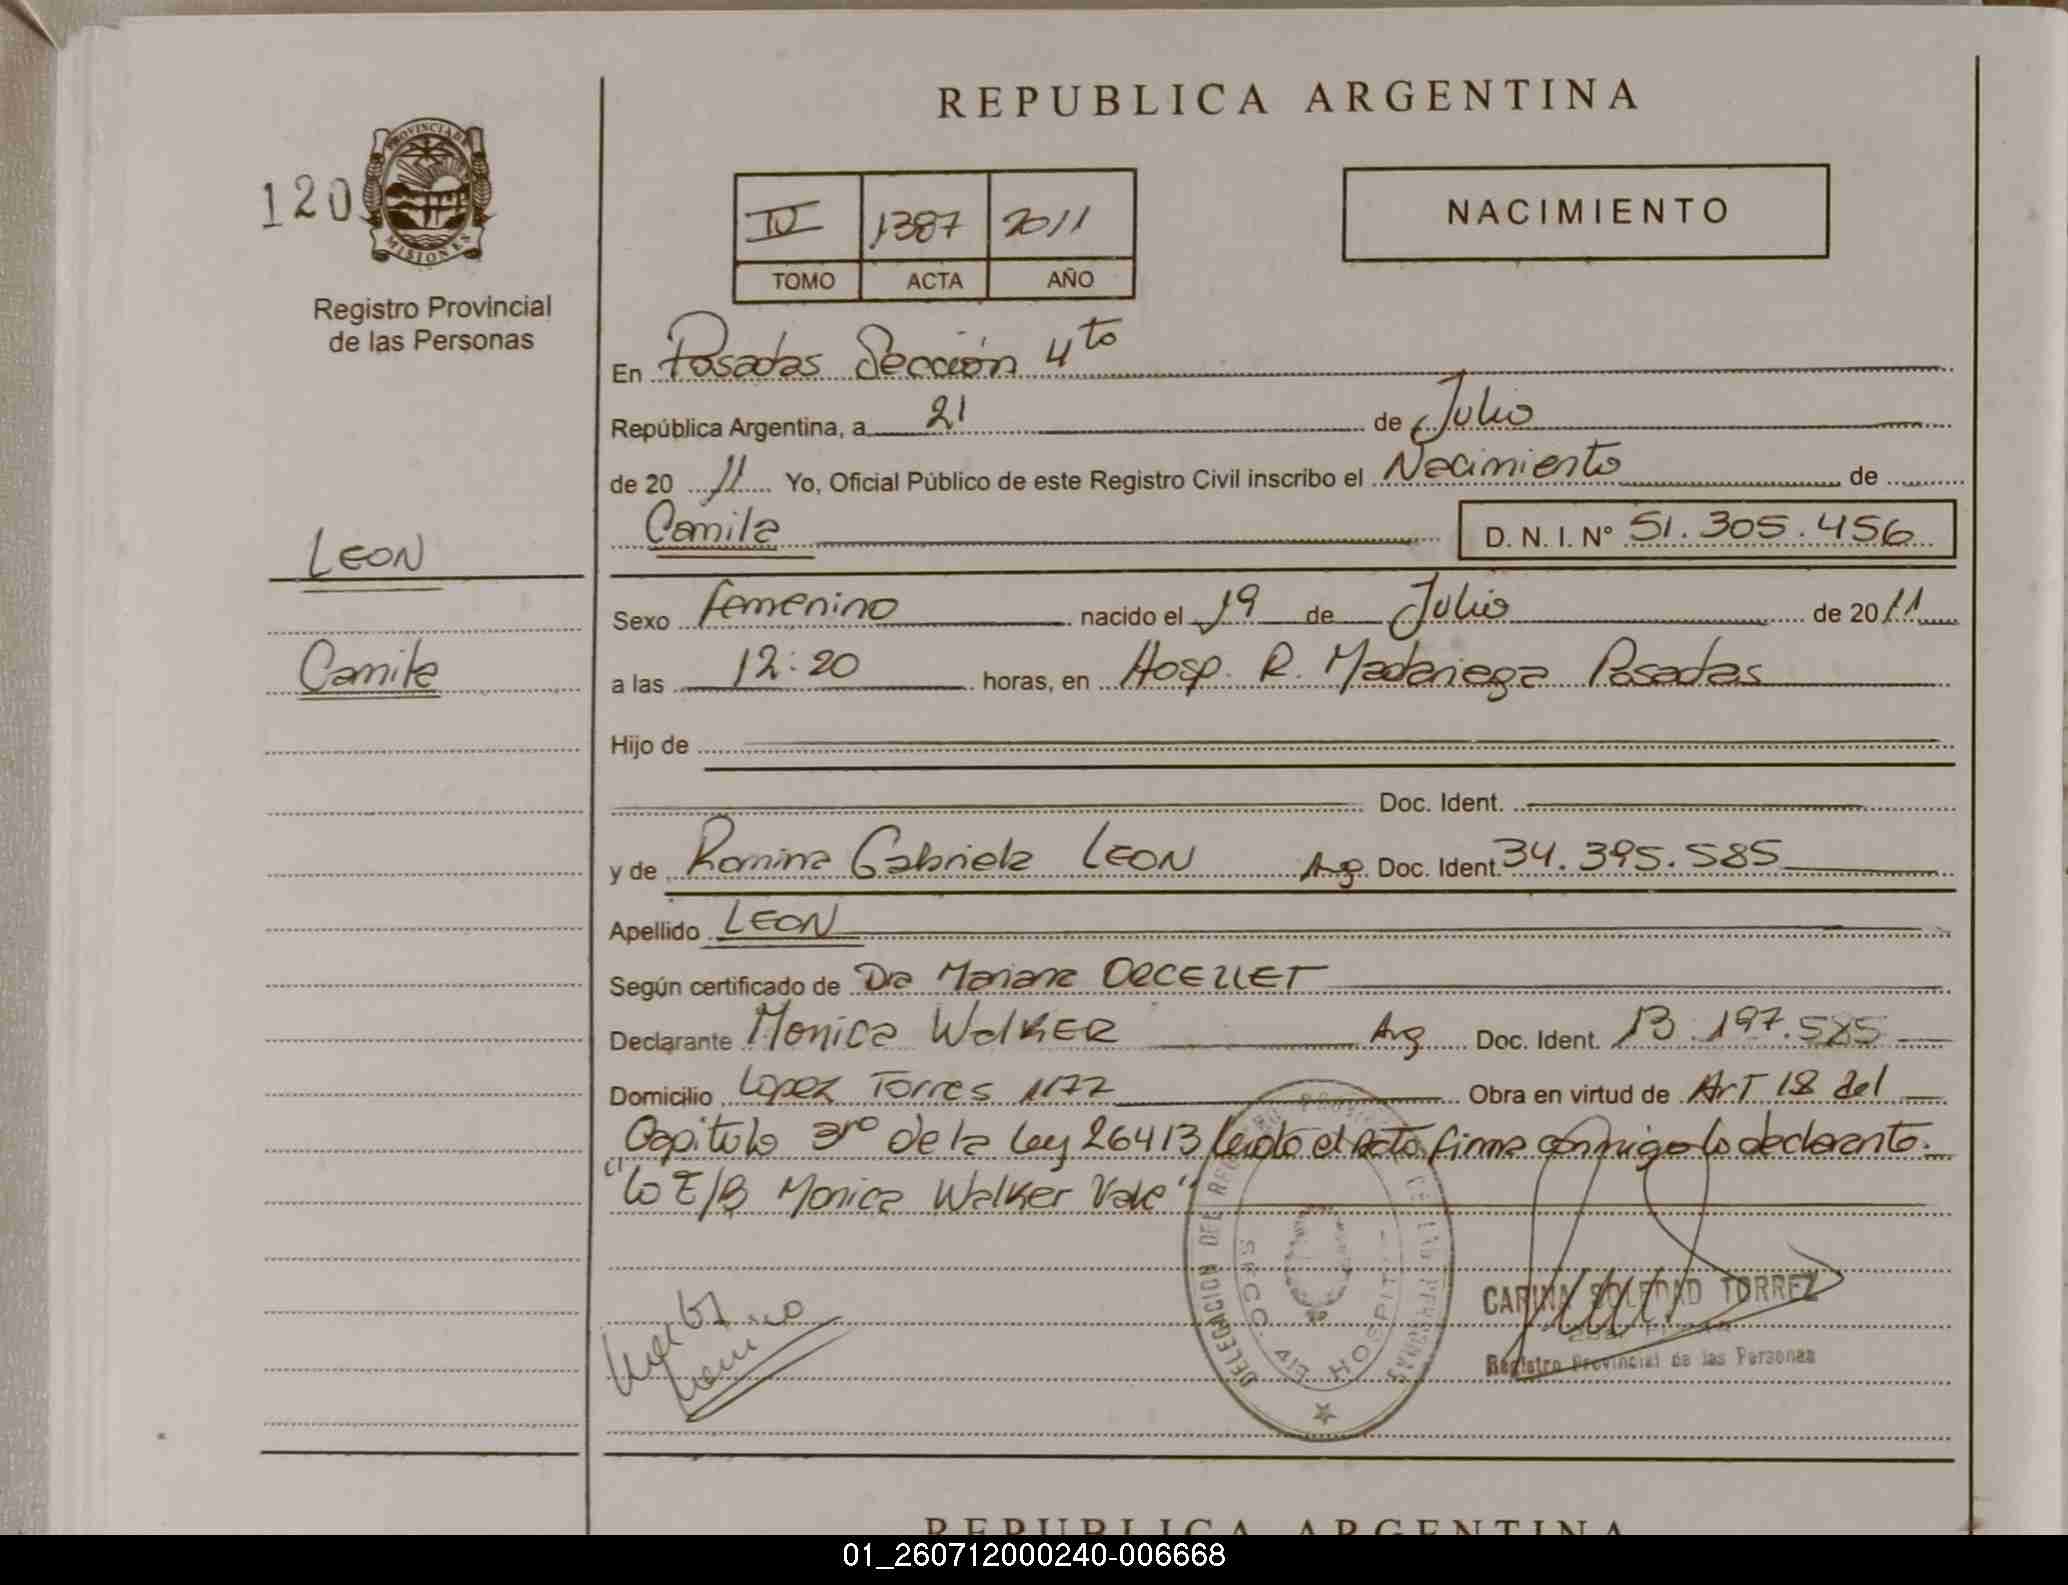 REPUBLICA ARGENTINA
120
PROVINCIA DE
MISIONES
Registro Provincial
de las Personas
IV 1387 2011
TOMO ACTA AÑO
NACIMIENTO
En Posadas Sección 4to
República Argentina, a 21 de Julio
de 20 11 Yo, Oficial Público de este Registro Civil inscribo el Nacimiento de
Camila D. N. I. Nº 51.305.456
LEON
Sexo femenino nacido el 19 de Julio de 2011
Camila
a las 12:20 horas, en Hosp. R. Madariaga Posadas
Hijo de
Doc. Ident.
y de Romina Gabriela LEON Arg. Doc. Ident. 34.395.585
Apellido LEON
Según certificado de Dra Mariana
Declarante Monica WalKER Arg Doc. Ident. 13.197.585
Domicilio Lopez Torres 1177 Obra en virtud de ArT 18 del
Capitulo 3ro de la Ley 26413 leido el acta, firma conmigo la declarante.
"lo E/B Monica Walker Vale"
DELEGACION DEL REGISTRO PROVINCIAL DE LAS PERSONAS
SECC. 4ta HOSPITAL
CARINA SOLEDAD TORREZ
Registro Provincial de las Personas
REPUBLICA ARGENTINA
01_260712000240-006668